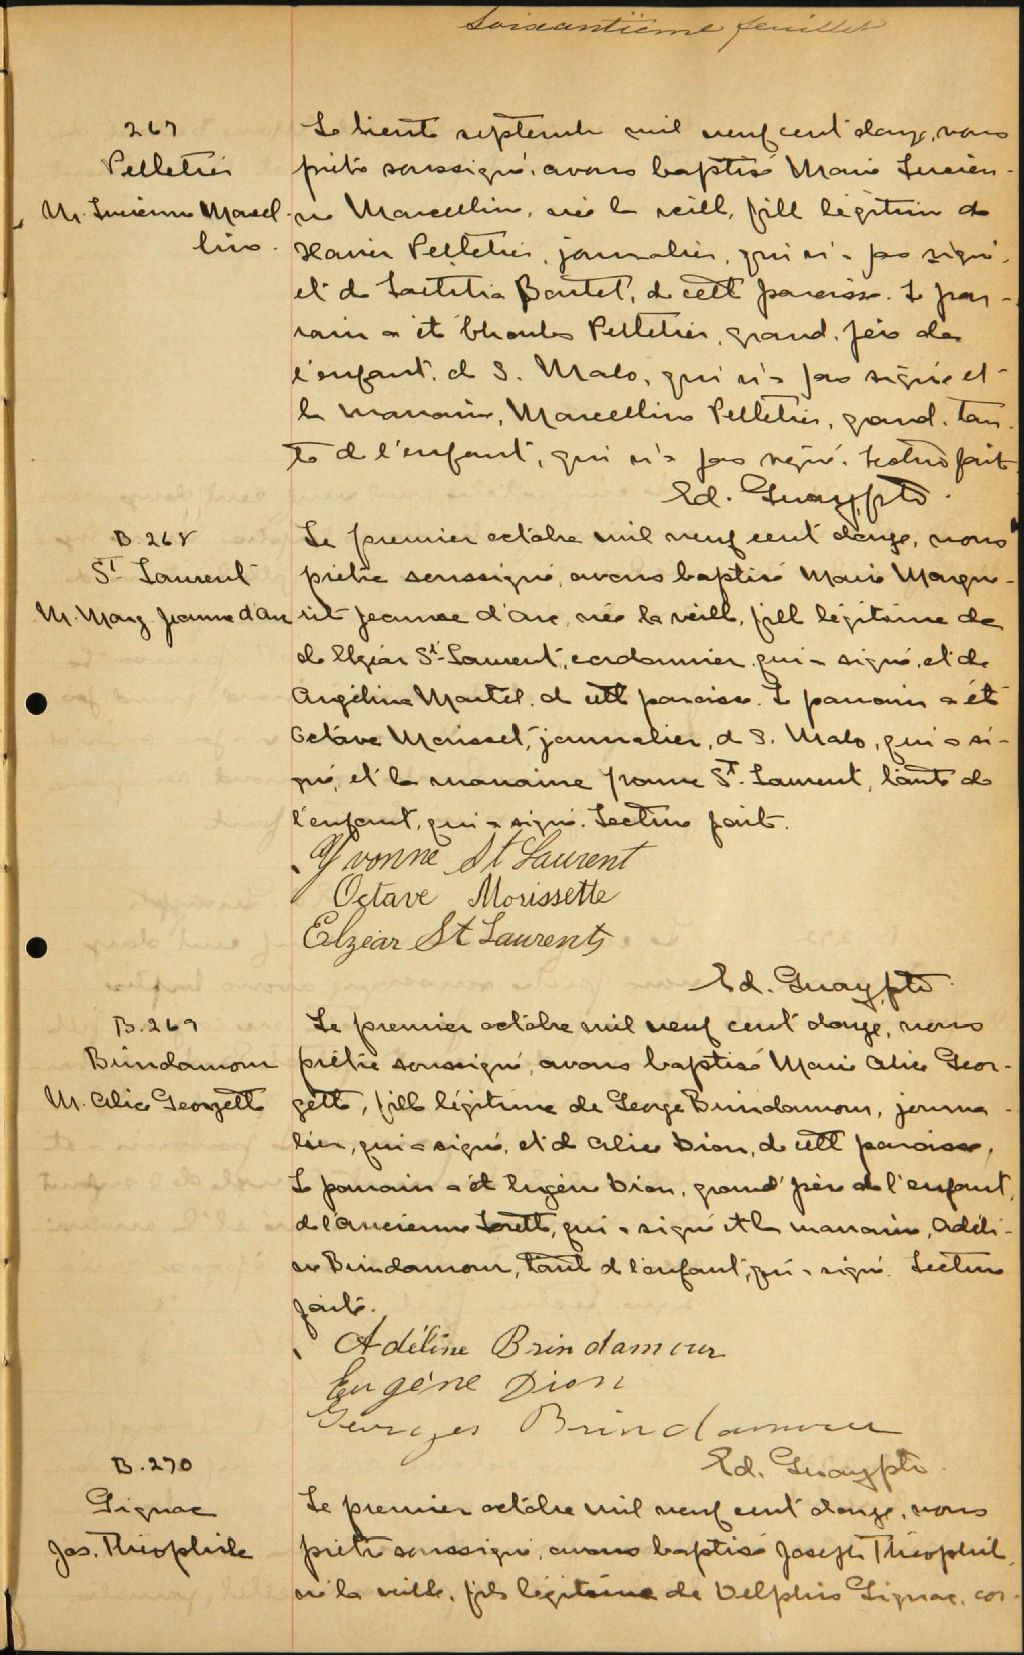 Soixantième feuillet
267
Pelletier
M. Lucienne Marcel-
line.
Le trente septembre mil neuf cent douze, nous
prêtre soussigné, avons baptisé Marie Lucien-
ne Marcelline, née la veille, fille légitime de
Xavier Pelletier, journalier, qui n'a pas signé,
et de Laetitia Boutet, de cette paroisse. Le par-
rain a été Charles Pelletier, grand-père de
l'enfant, de S. Malo, qui n'a pas signé et
la marraine, Marcelline Pelletier, grand-tan-
te de l'enfant, qui n'a pas signé. Lecture faite
Ed. Guay, ptre.
B. 268
St Laurent
M. Marg Jeanne d'Arc
Le premier octobre mil neuf cent douze, nous
prêtre soussigné, avons baptisé Marie Margue-
rite Jeanne d'Arc, née la veille, fille légitime de
de Elzéar St-Laurent, cordonnier, qui a signé, et de
Angélina Martel, de cette paroisse. Le parrain a été
Octave Morisset, journalier, de S. Malo, qui a si-
gné, et la marraine Yvonne St. Laurent, tante de
l'enfant, qui a signé. Lecture faite.
Yvonne St Laurent
Octave Morissette
Elzéar St Laurent
Ed. Guay, ptre.
B. 269
Brindamour
M. Alice Georgette
Le premier octobre mil neuf cent douze, nous
prêtre soussigné, avons baptisé Marie Alice Geor-
gette, fille légitime de George Brindamour, journa-
lier, qui a signé, et de Alice Dion, de cette paroisse,
Le parrain a été Eugène Dion, grand'père de l'enfant,
de l'ancienne Lorette, qui a signé et la marraine, Adéli-
ne Brindamour, tante de l'enfant, qui a signé. Lecture
faite.
Adéline Brindamour
Eugène Dion
Georges Brindamour
Ed. Guay, ptre.
B. 270
Gignac
Jos. Théophile
Le premier octobre mil neuf cent douze, nous
prêtre soussigné, avons baptisé Joseph Théophile,
né la veille, fils légitime de Delphis Gignac, cor-